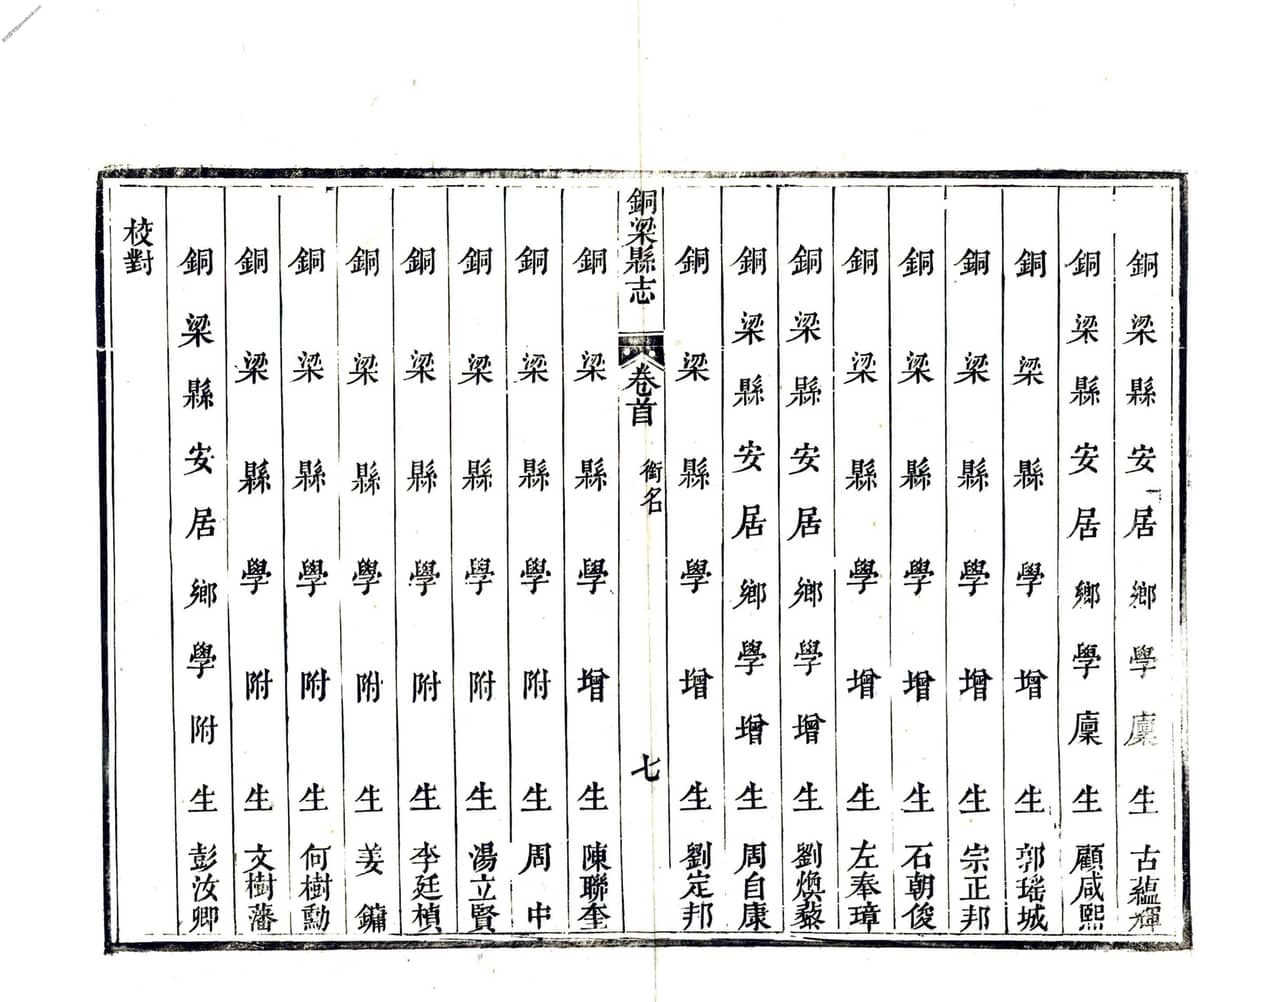 銅梁縣安居鄉學廩生古蘊輝
銅梁縣安居鄉學廩生顧咸熙
銅梁縣學增生郭瑶城
銅梁縣學增生宗正邦
銅梁縣學增生石朝俊
銅梁縣學增生左奉璋
銅梁縣安居鄉學增生劉煥藜
銅梁縣安居鄉學增生周自康
銅梁縣學增生劉定邦
銅梁縣志 卷首 銜名 七
銅梁縣學增生陳聯奎
銅梁縣學附生周中
銅梁縣學附生湯立賢
銅梁縣學附生李廷楨
銅梁縣學附生姜鏞
銅梁縣學附生何樹勳
銅梁縣學附生文樹藩
銅梁縣安居鄉學附生彭汝卿
校對